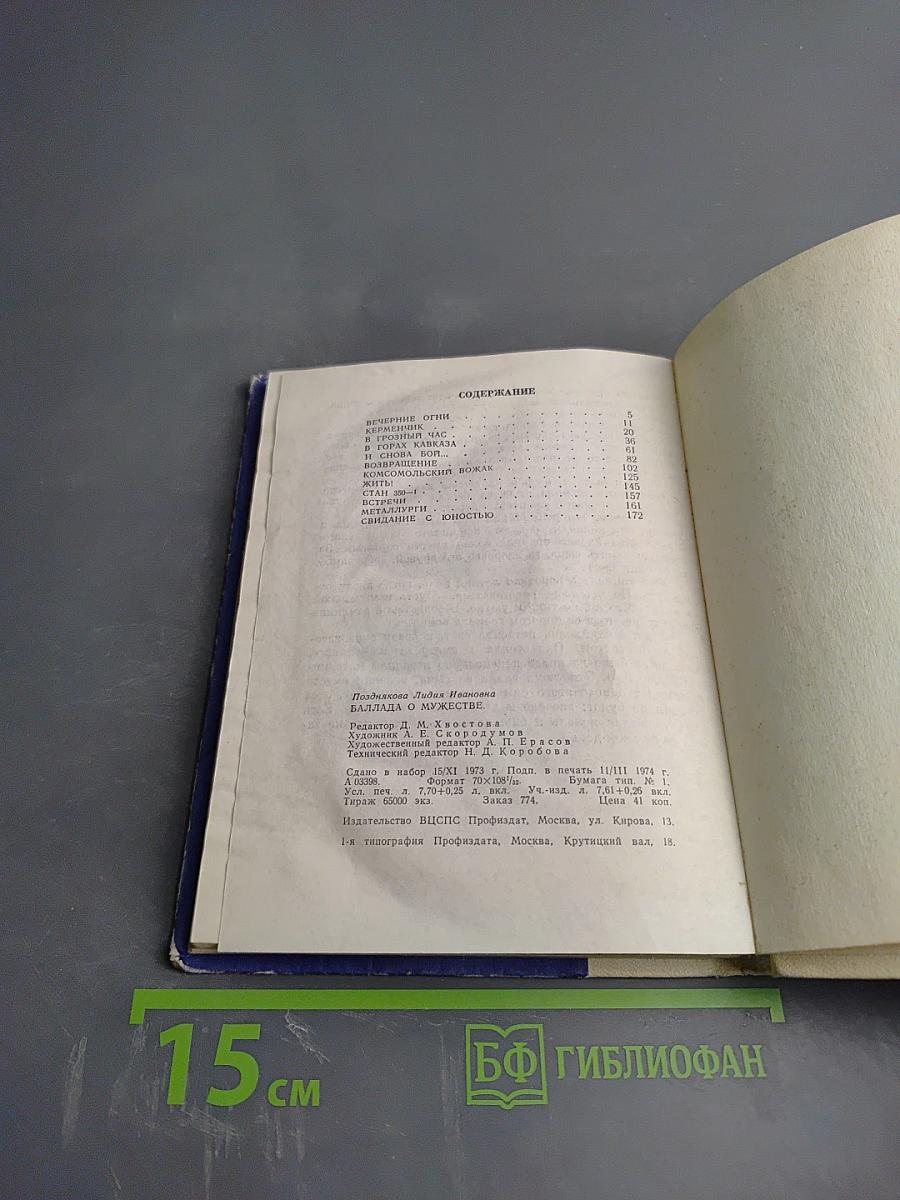 СОДЕРЖАНИЕ
ВЕЧЕРНИЕ ОГНИ . . . . . . . . 5
КЕРМЕНЧИК . . . . . . . . . 11
В ГРОЗНЫЙ ЧАС . . . . . . . . 20
В ГОРАХ КАВКАЗА . . . . . . . . 36
И СНОВА БОЙ... . . . . . . . . 61
ВОЗВРАЩЕНИЕ . . . . . . . . 82
КОМСОМОЛЬСКИЙ ВОЖАК . . . . . . 102
ЖИТЬ! . . . . . . . . . . 125
СТАН 350—1 . . . . . . . . . 145
ВСТРЕЧИ . . . . . . . . . . 157
МЕТАЛЛУРГИ . . . . . . . . . 161
СВИДАНИЕ С ЮНОСТЬЮ . . . . . . 172
Позднякова Лидия Ивановна
БАЛЛАДА О МУЖЕСТВЕ.
Редактор Д. М. Хвостова
Художник А. Е. Скородумов
Художественный редактор А. П. Ерасов
Технический редактор Н. Д. Коробова
Сдано в набор 15/XI 1973 г. Подп. в печать 11/III 1974 г.
А 03398. Формат 70×108¹/₃₂. Бумага тип. № 1.
Усл. печ. л. 7,70+0,25 л. вкл. Уч.-изд. л. 7,61+0,26 вкл.
Тираж 65000 экз. Заказ 774. Цена 41 коп.
Издательство ВЦСПС Профиздат, Москва, ул. Кирова, 13.
1-я типография Профиздата, Москва, Крутицкий вал, 18.
15 см
БФ ГИБЛИОФАН